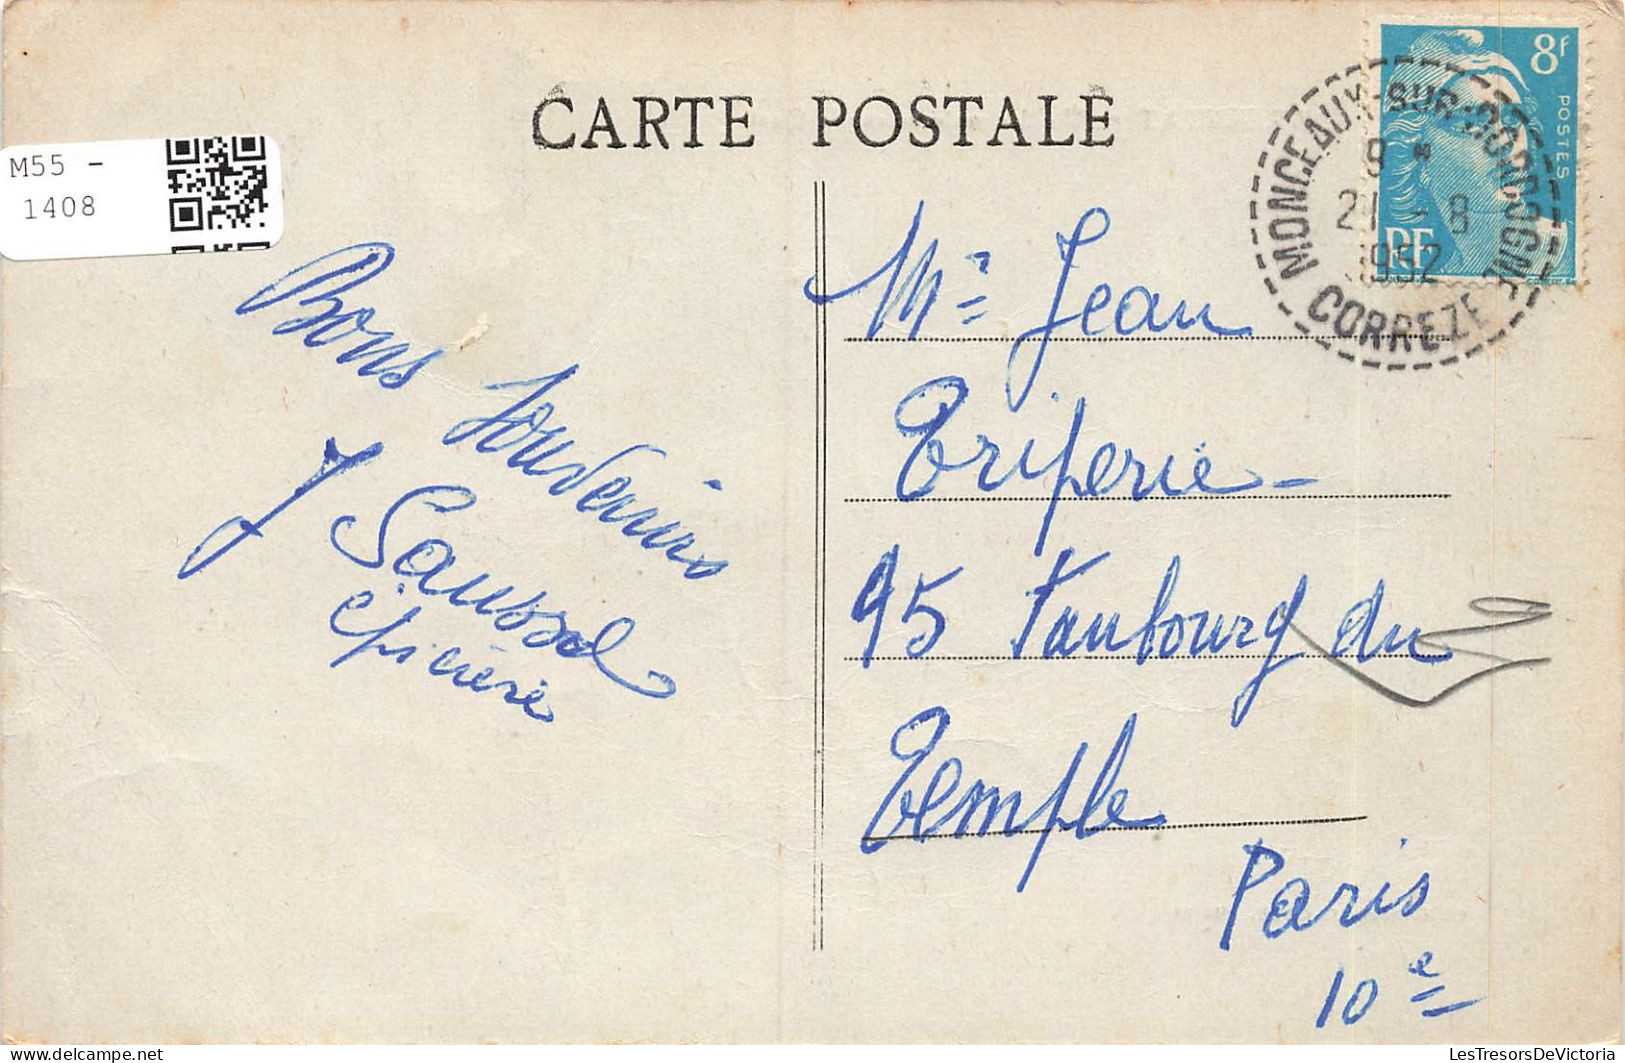 CARTE POSTALE
M55 -
1408
8f
POSTES
RF
MONCEAUX-SUR-DORDOGNE
8 H
21 - 8
1952
CORREZE
Bons Souvenirs
J Saussol
épicière
Mr Jean
Triperie -
95 Faubourg du
Temple
Paris
10e
LesTresorsDeVictoria
delcampe.net